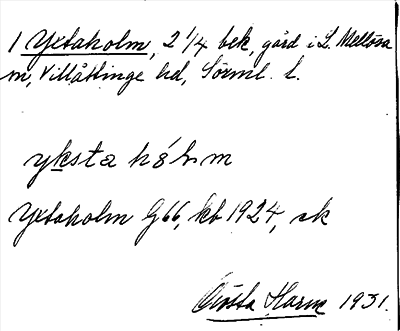 1 Yxtaholm, 2 1/4 bek, gård i L. Mellösa
sn, Villåttinge hd, Sörml. l.
yksta hó̀lm
Yxtaholm G66, kb 1924, ek
Gösta Harm 1931.